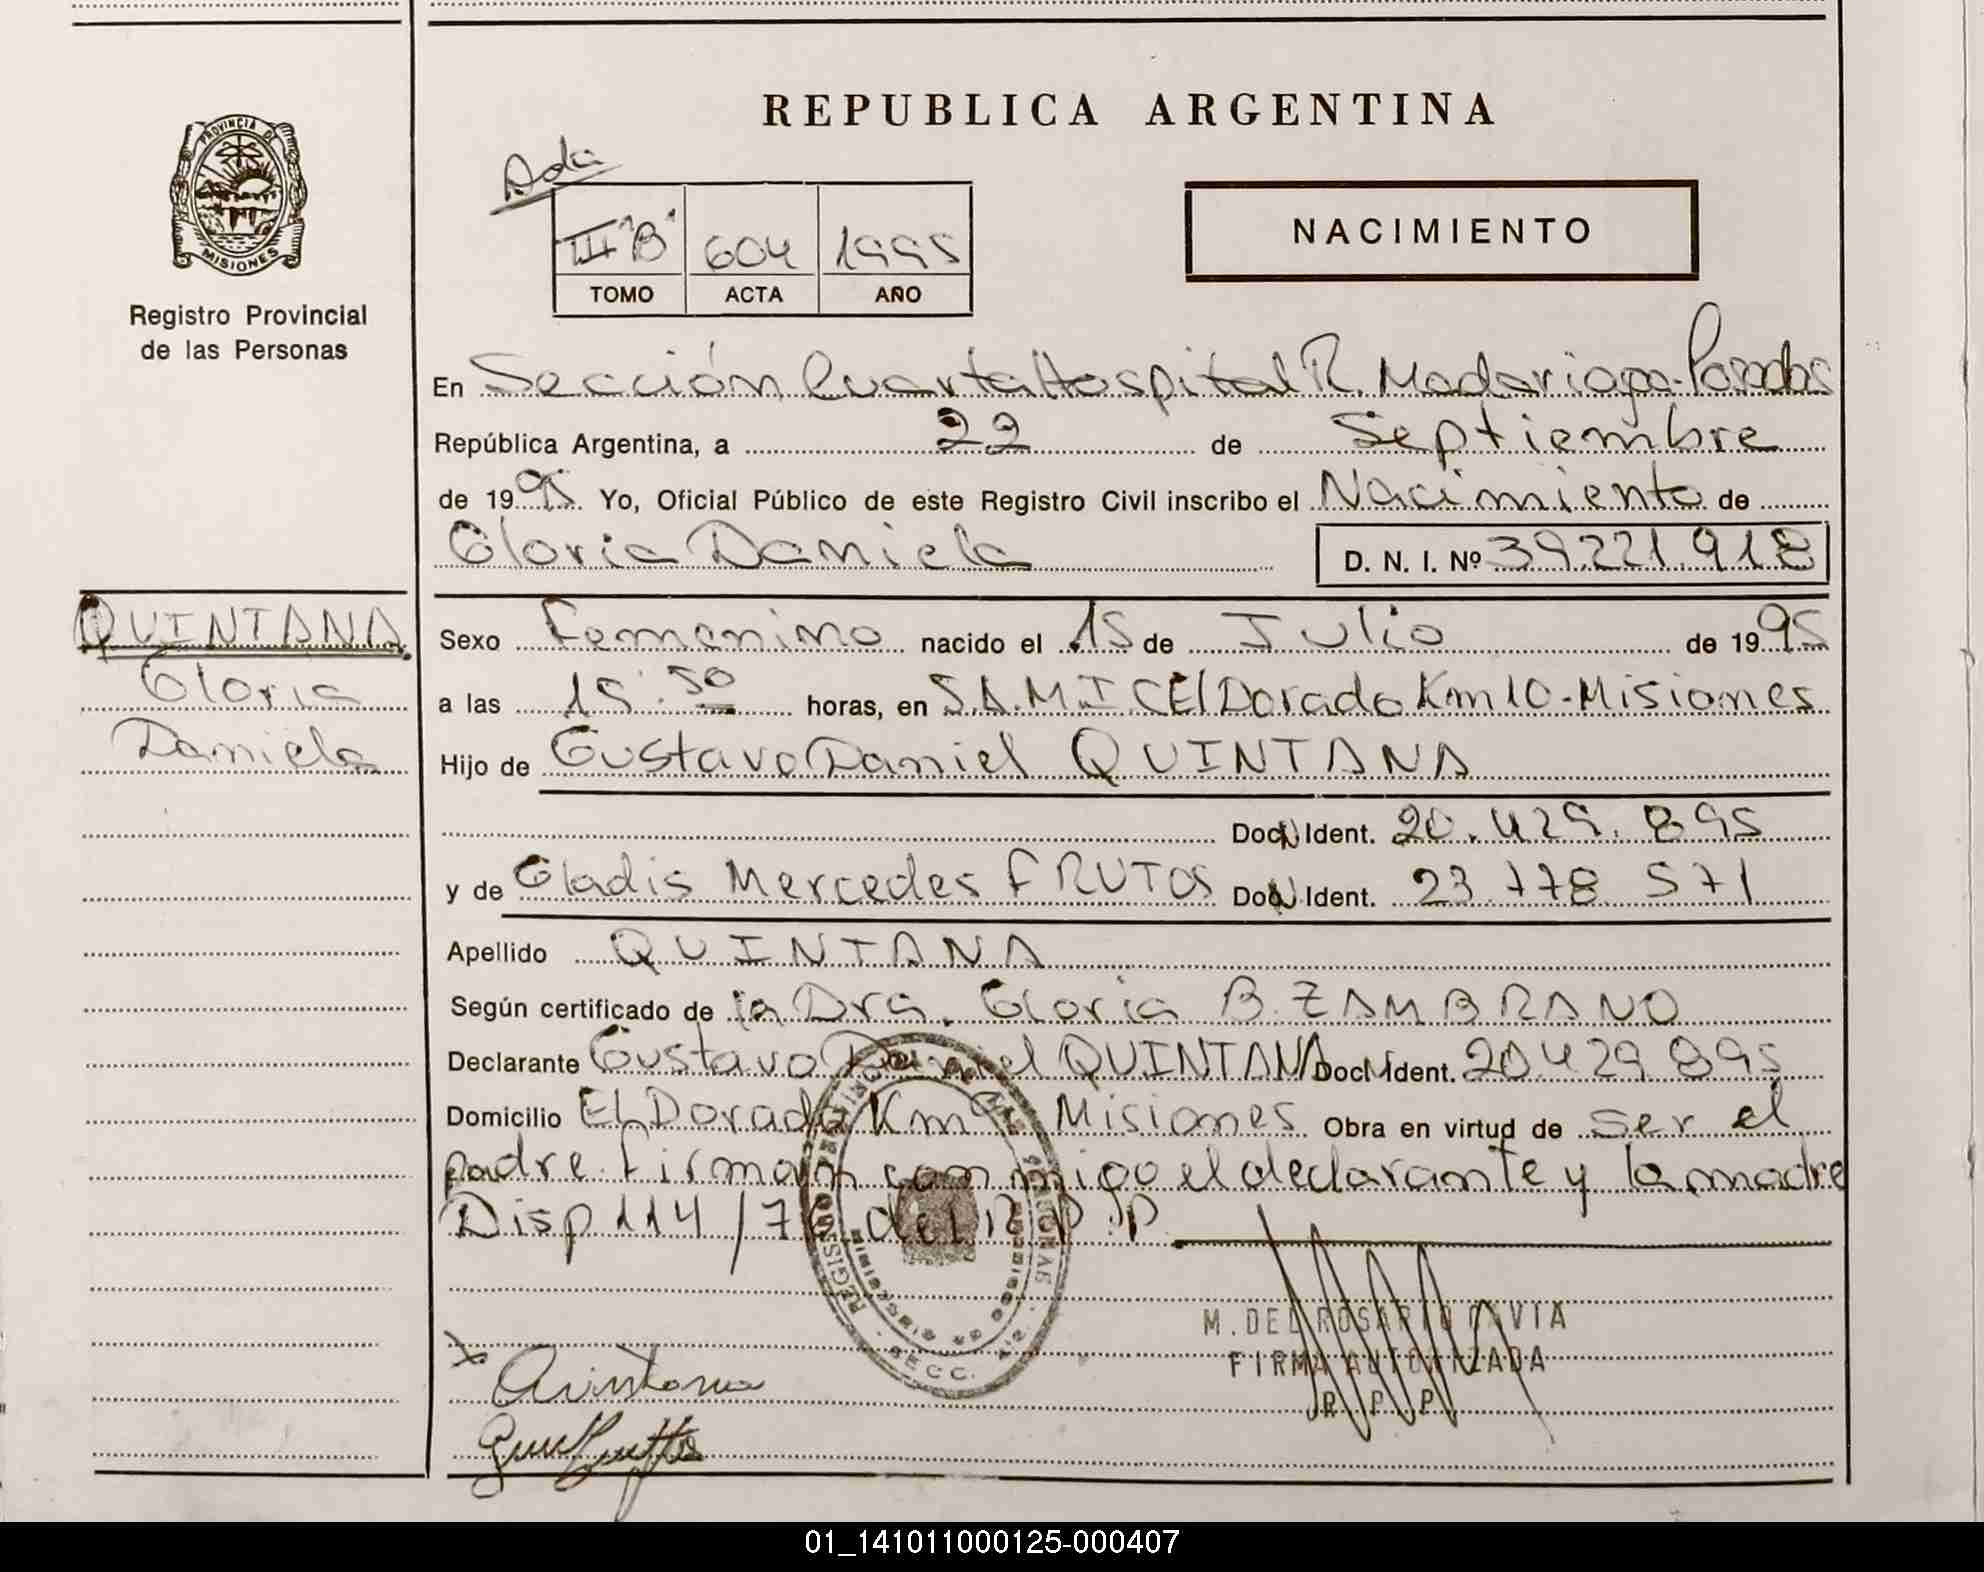 REPUBLICA ARGENTINA
PROVINCIA DE
MISIONES
Registro Provincial
de las Personas
Ada
III "B" 604 1995
TOMO ACTA AÑO
NACIMIENTO
En Sección Cuarta Hospital R. Madariaga-Posadas
República Argentina, a 22 de Septiembre
de 1995 Yo, Oficial Público de este Registro Civil inscribo el Nacimiento de
Gloria Daniela D. N. I. Nº 39.221.918
QUINTANA
Gloria
Daniela
Sexo Femenino nacido el 15 de Julio de 1995
a las 15:50 horas, en S.A.M.I.C El Dorado Km 10-Misiones
Hijo de Gustavo Daniel QUINTANA
Doc. N Ident. 20.429.895
y de Gladis Mercedes FRUTOS Doc. N Ident. 23.778.571
Apellido QUINTANA
Según certificado de la Dra. Gloria B. ZAMBRANO
Declarante Gustavo Daniel QUINTANA Doc N Ident. 20.429.895
Domicilio El Dorado Km 9 Misiones Obra en virtud de ser el
padre. Firman conmigo el declarante y la madre
Disp 114/7 del R.P.P
REGISTRO
SECC.
M. DEL ROSARIO GAVIA
FIRMA AUTORIZADA
R. P. P.
Quintana
01_141011000125-000407